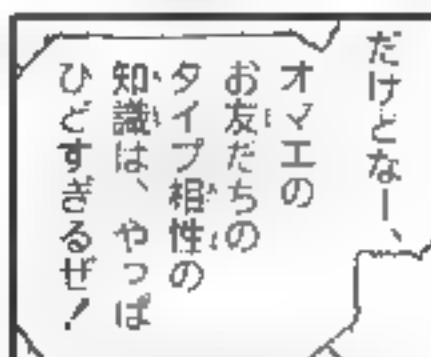 だけどなー、
オマエの
お友だちの
タイプ相性の
知識は、やっぱ
ひどすぎるぜ！